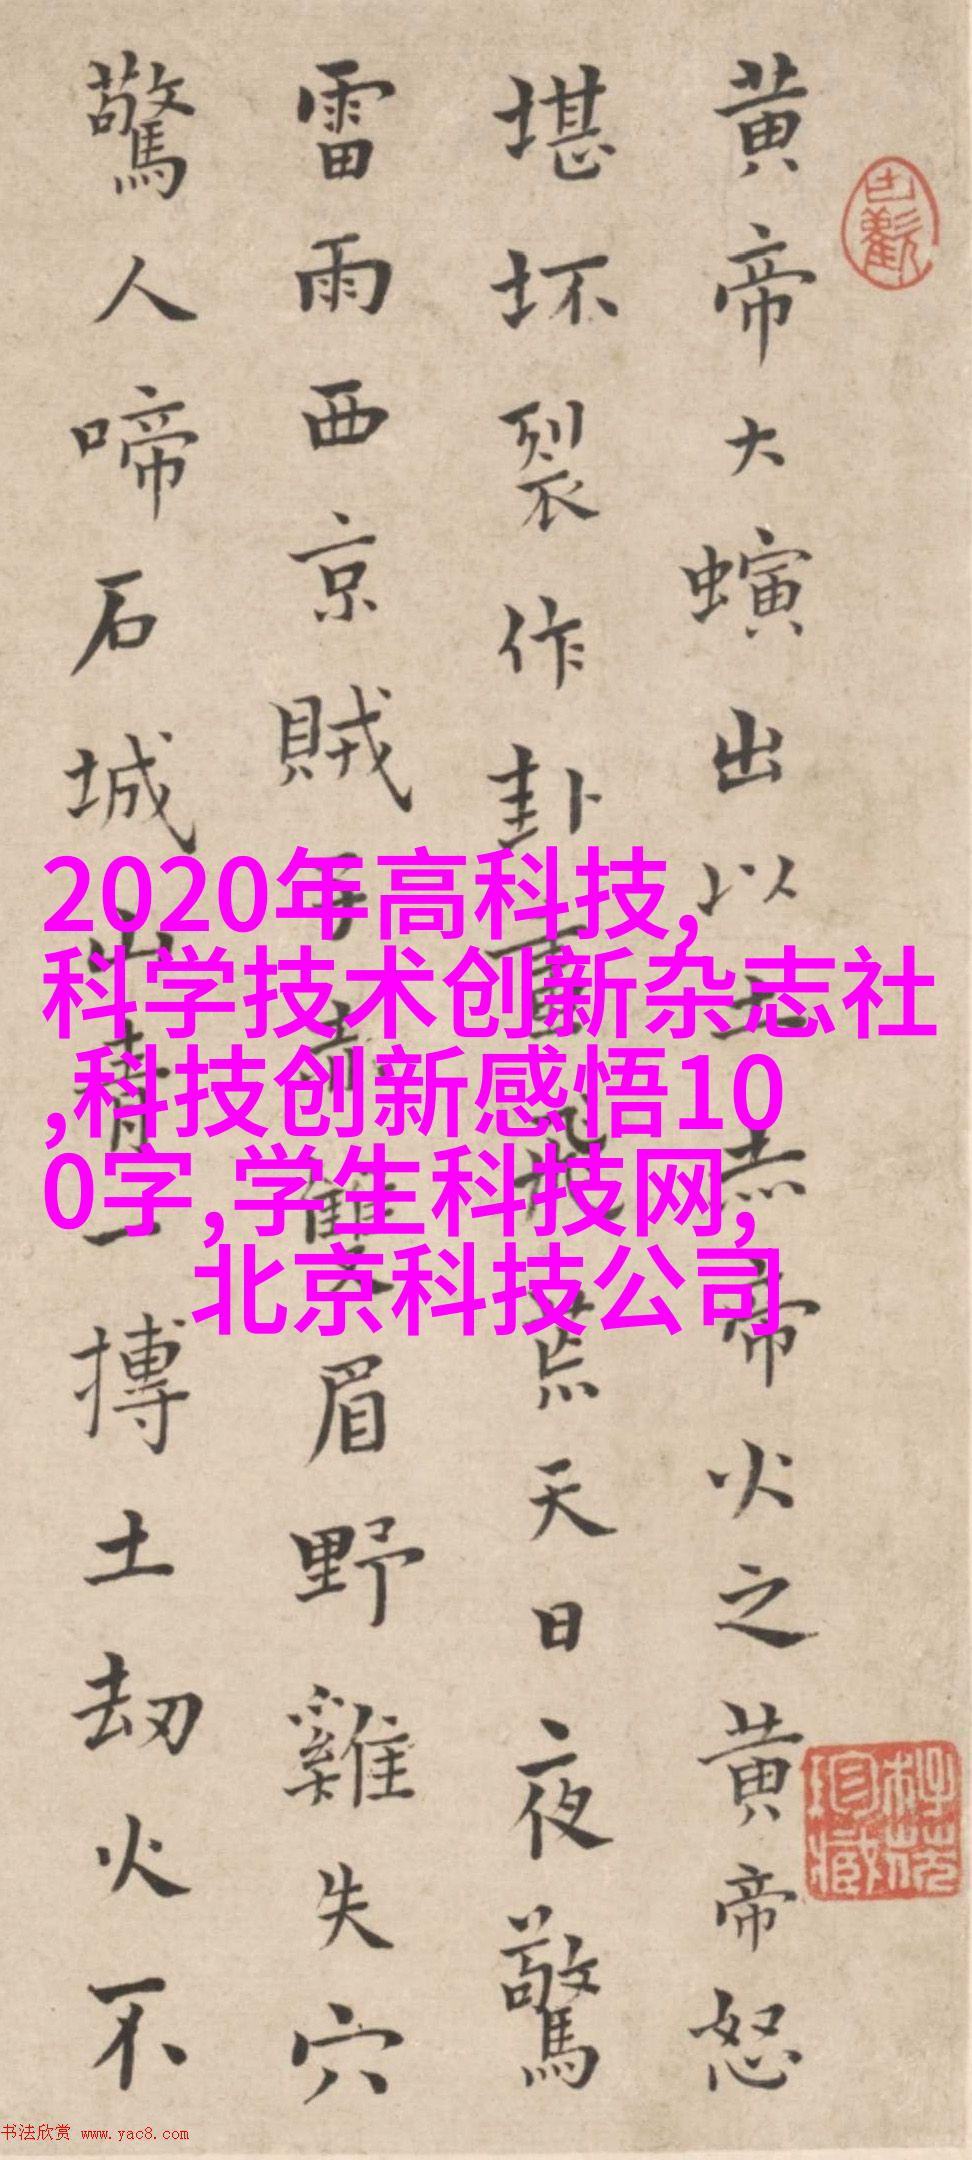 黄帝大螾出以土赤帝火之黄帝怒
堪坏裂作卦飛天日夜驚
雷雨西京賊手雙眉野雞失穴
驚人啼石城山青一摶土劫火不
2020年高科技,
科学技术创新杂志社
,科技创新感悟10
0字,学生科技网,
北京科技公司
书法欣赏 www.yac8.com